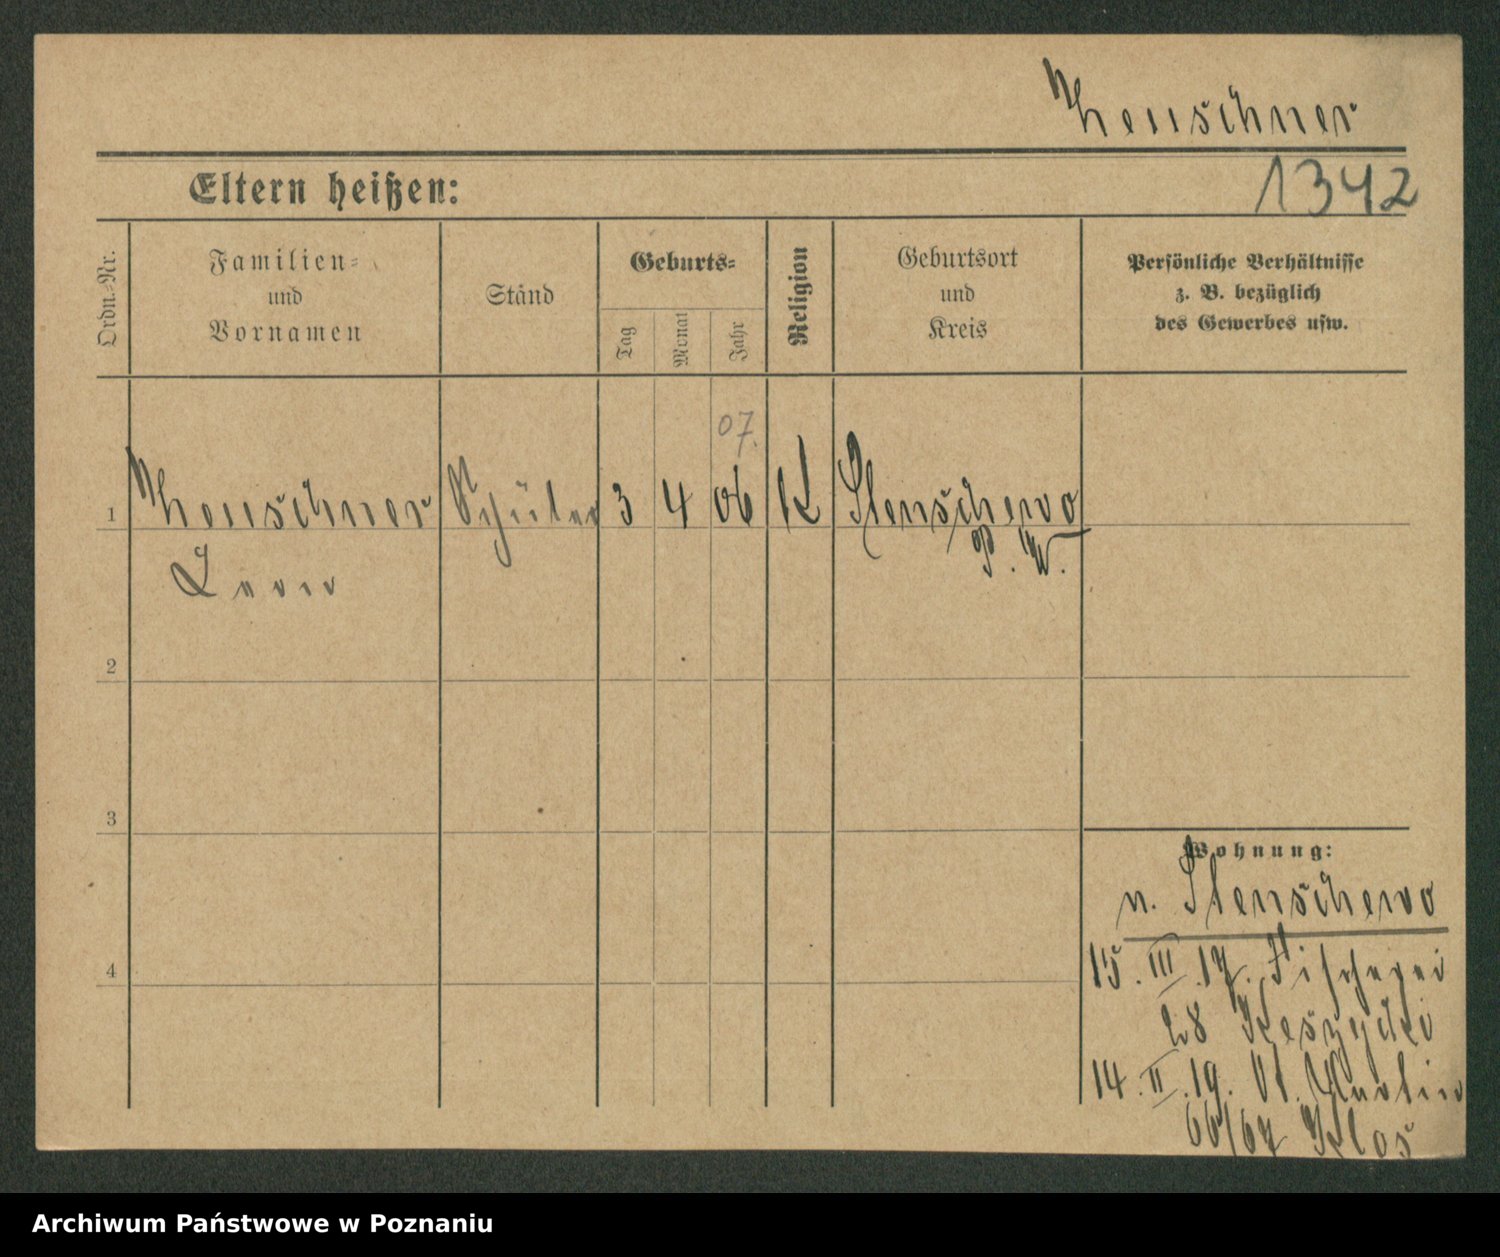 Heuschner
Eltern heißen:
1342
Ordn.-Nr.
Familien-
und
Vornamen
Stand
Geburts-
Tag
Monat
Jahr
Religion
Geburtsort
und
Kreis
Persönliche Verhältnisse
z. B. bezüglich
des Gewerbes usw.
07.
1 Heuschner Schüler 3 4 06 K Stenschewo
P. W.
2
3
4
Wohnung:
n. Stenschewo
15. III. 17. Fischerei
28 Keszycki
14. II. 19. St. Martin
66/67 Klos
Archiwum Państwowe w Poznaniu